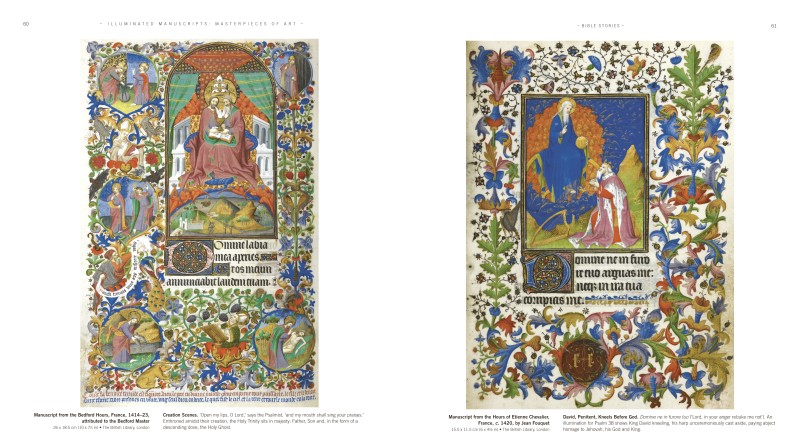 60
– ILLUMINATED MANUSCRIPTS: MASTERPIECES OF ART –
Domine labia
mea aperies
Et os meum
annunciabit laudem tuam:
Manuscript from the Bedford Hours, France, 1414–23,
attributed to the Bedford Master
The British Library, London
Creation Scenes. 'Open my lips, O Lord,' says the Psalmist, 'and my mouth shall sing your praises.'
Enthroned amidst their creation, the Holy Trinity sits in majesty: Father, Son and, in the form of a
descending dove, the Holy Ghost.
– BIBLE STORIES –
61
Domine ne in furo
re tuo arguas me:
neq; in ira tua
corripias me.
Manuscript from the Hours of Etienne Chevalier,
France, c. 1420, by Jean Fouquet
The British Library, London
David, Penitent, Kneels Before God. Domine ne in furore tuo ('Lord, in your anger rebuke me not'). An
illumination for Psalm 38 shows King David kneeling, his harp unceremoniously cast aside, paying abject
homage to Jehovah, his God and King.